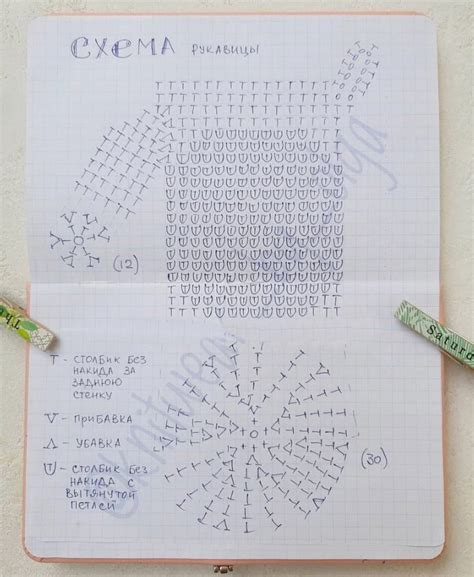 СХЕМА РУКАВИЦЫ
(12)
T - СТОЛБИК БЕЗ
НАКИДА ЗА
ЗАДНЮЮ
СТЕНКУ
V - ПРИБАВКА
Λ - УБАВКА
- СТОЛБИК БЕЗ
НАКИДА С
ВЫТЯНУТОЙ
ПЕТЛЕЙ
(30)